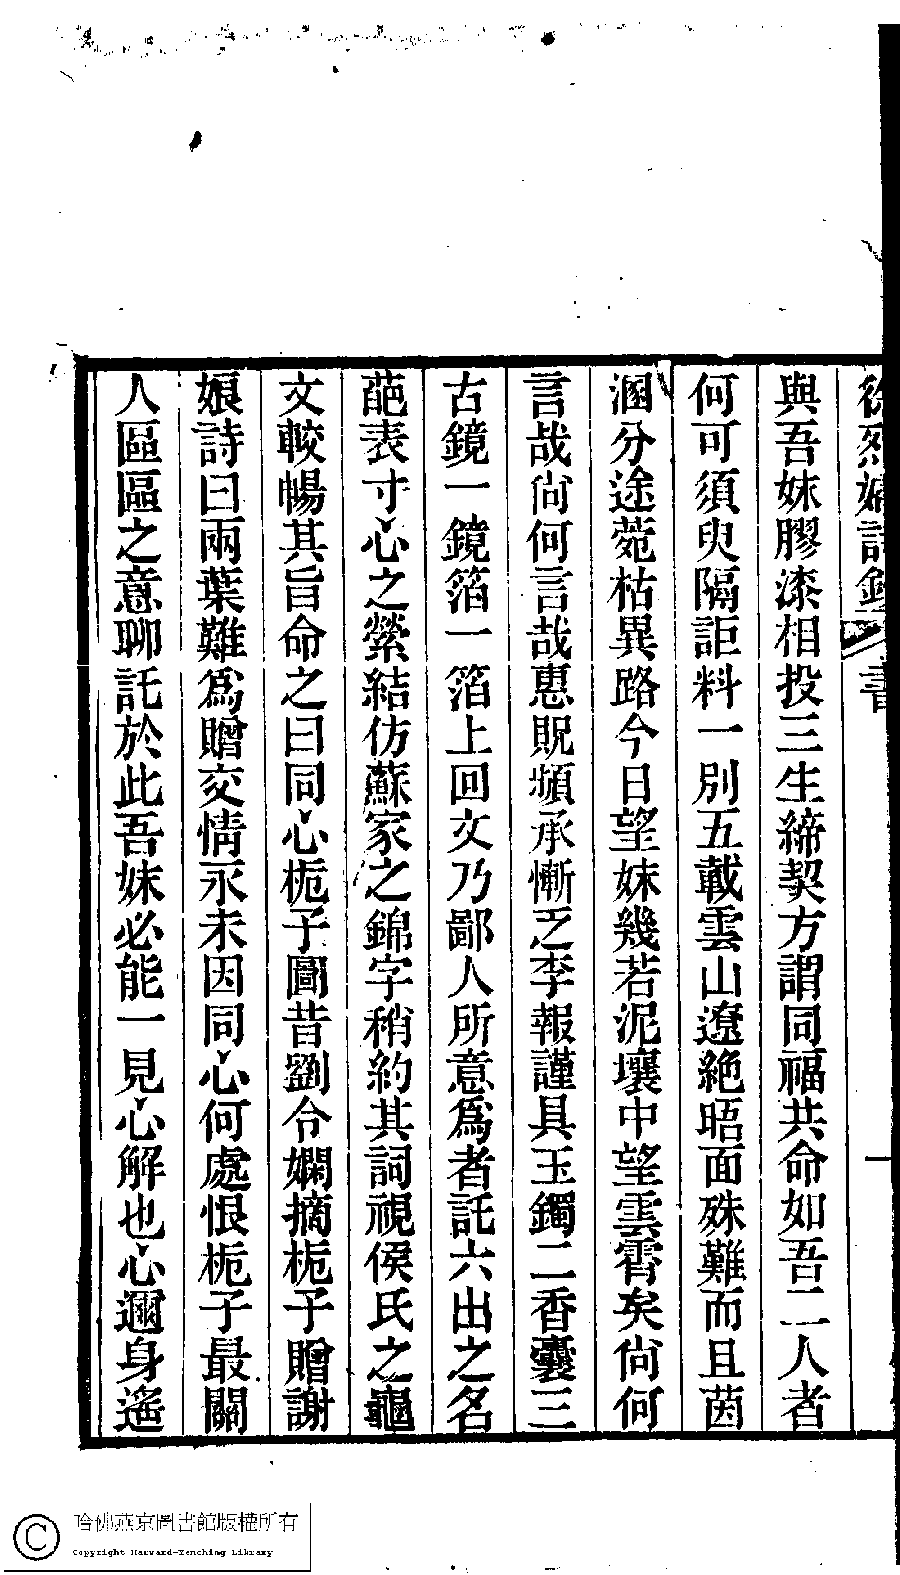 徐烈婦詩鈔 書 一
與吾妹膠漆相投三生締契方謂同福共命如吾二人者
何可須臾隔詎料一別五載雲山遼絶晤面殊難而且茵
溷分途菀枯異路今日望妹幾若泥壤中望雲霄矣尙何
言哉尙何言哉惠貺頻承慚乏李報謹具玉鐲二香囊三
古鏡一鏡箔一箔上回文乃鄙人所意爲者託六出之名
葩表寸心之縈結仿蘇家之錦字稍約其詞視侯氏之龜
文較暢其旨命之曰同心梔子圖昔劉令嫻摘梔子贈謝
娘詩曰兩葉難爲贈交情永未因同心何處恨梔子最關
人區區之意聊託於此吾妹必能一見心解也心邇身遙
哈佛燕京圖書館版權所有
Copyright Harvard-Yenching Library